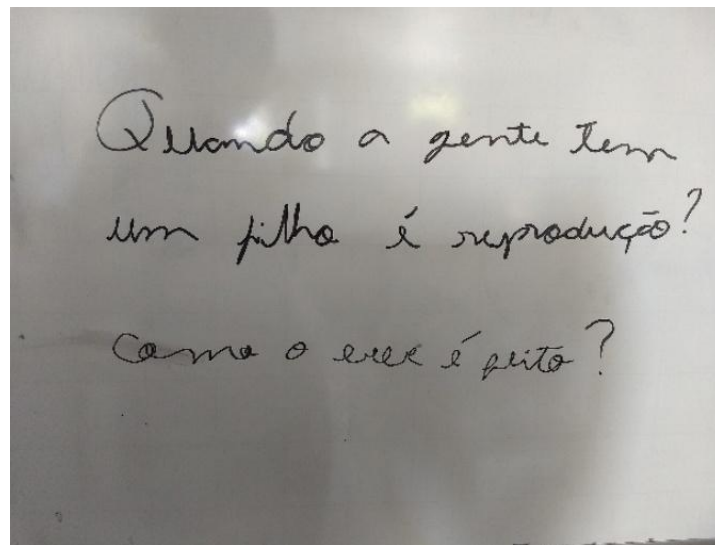 Quando a gente tem
um filho é reprodução?
Como o é feito?